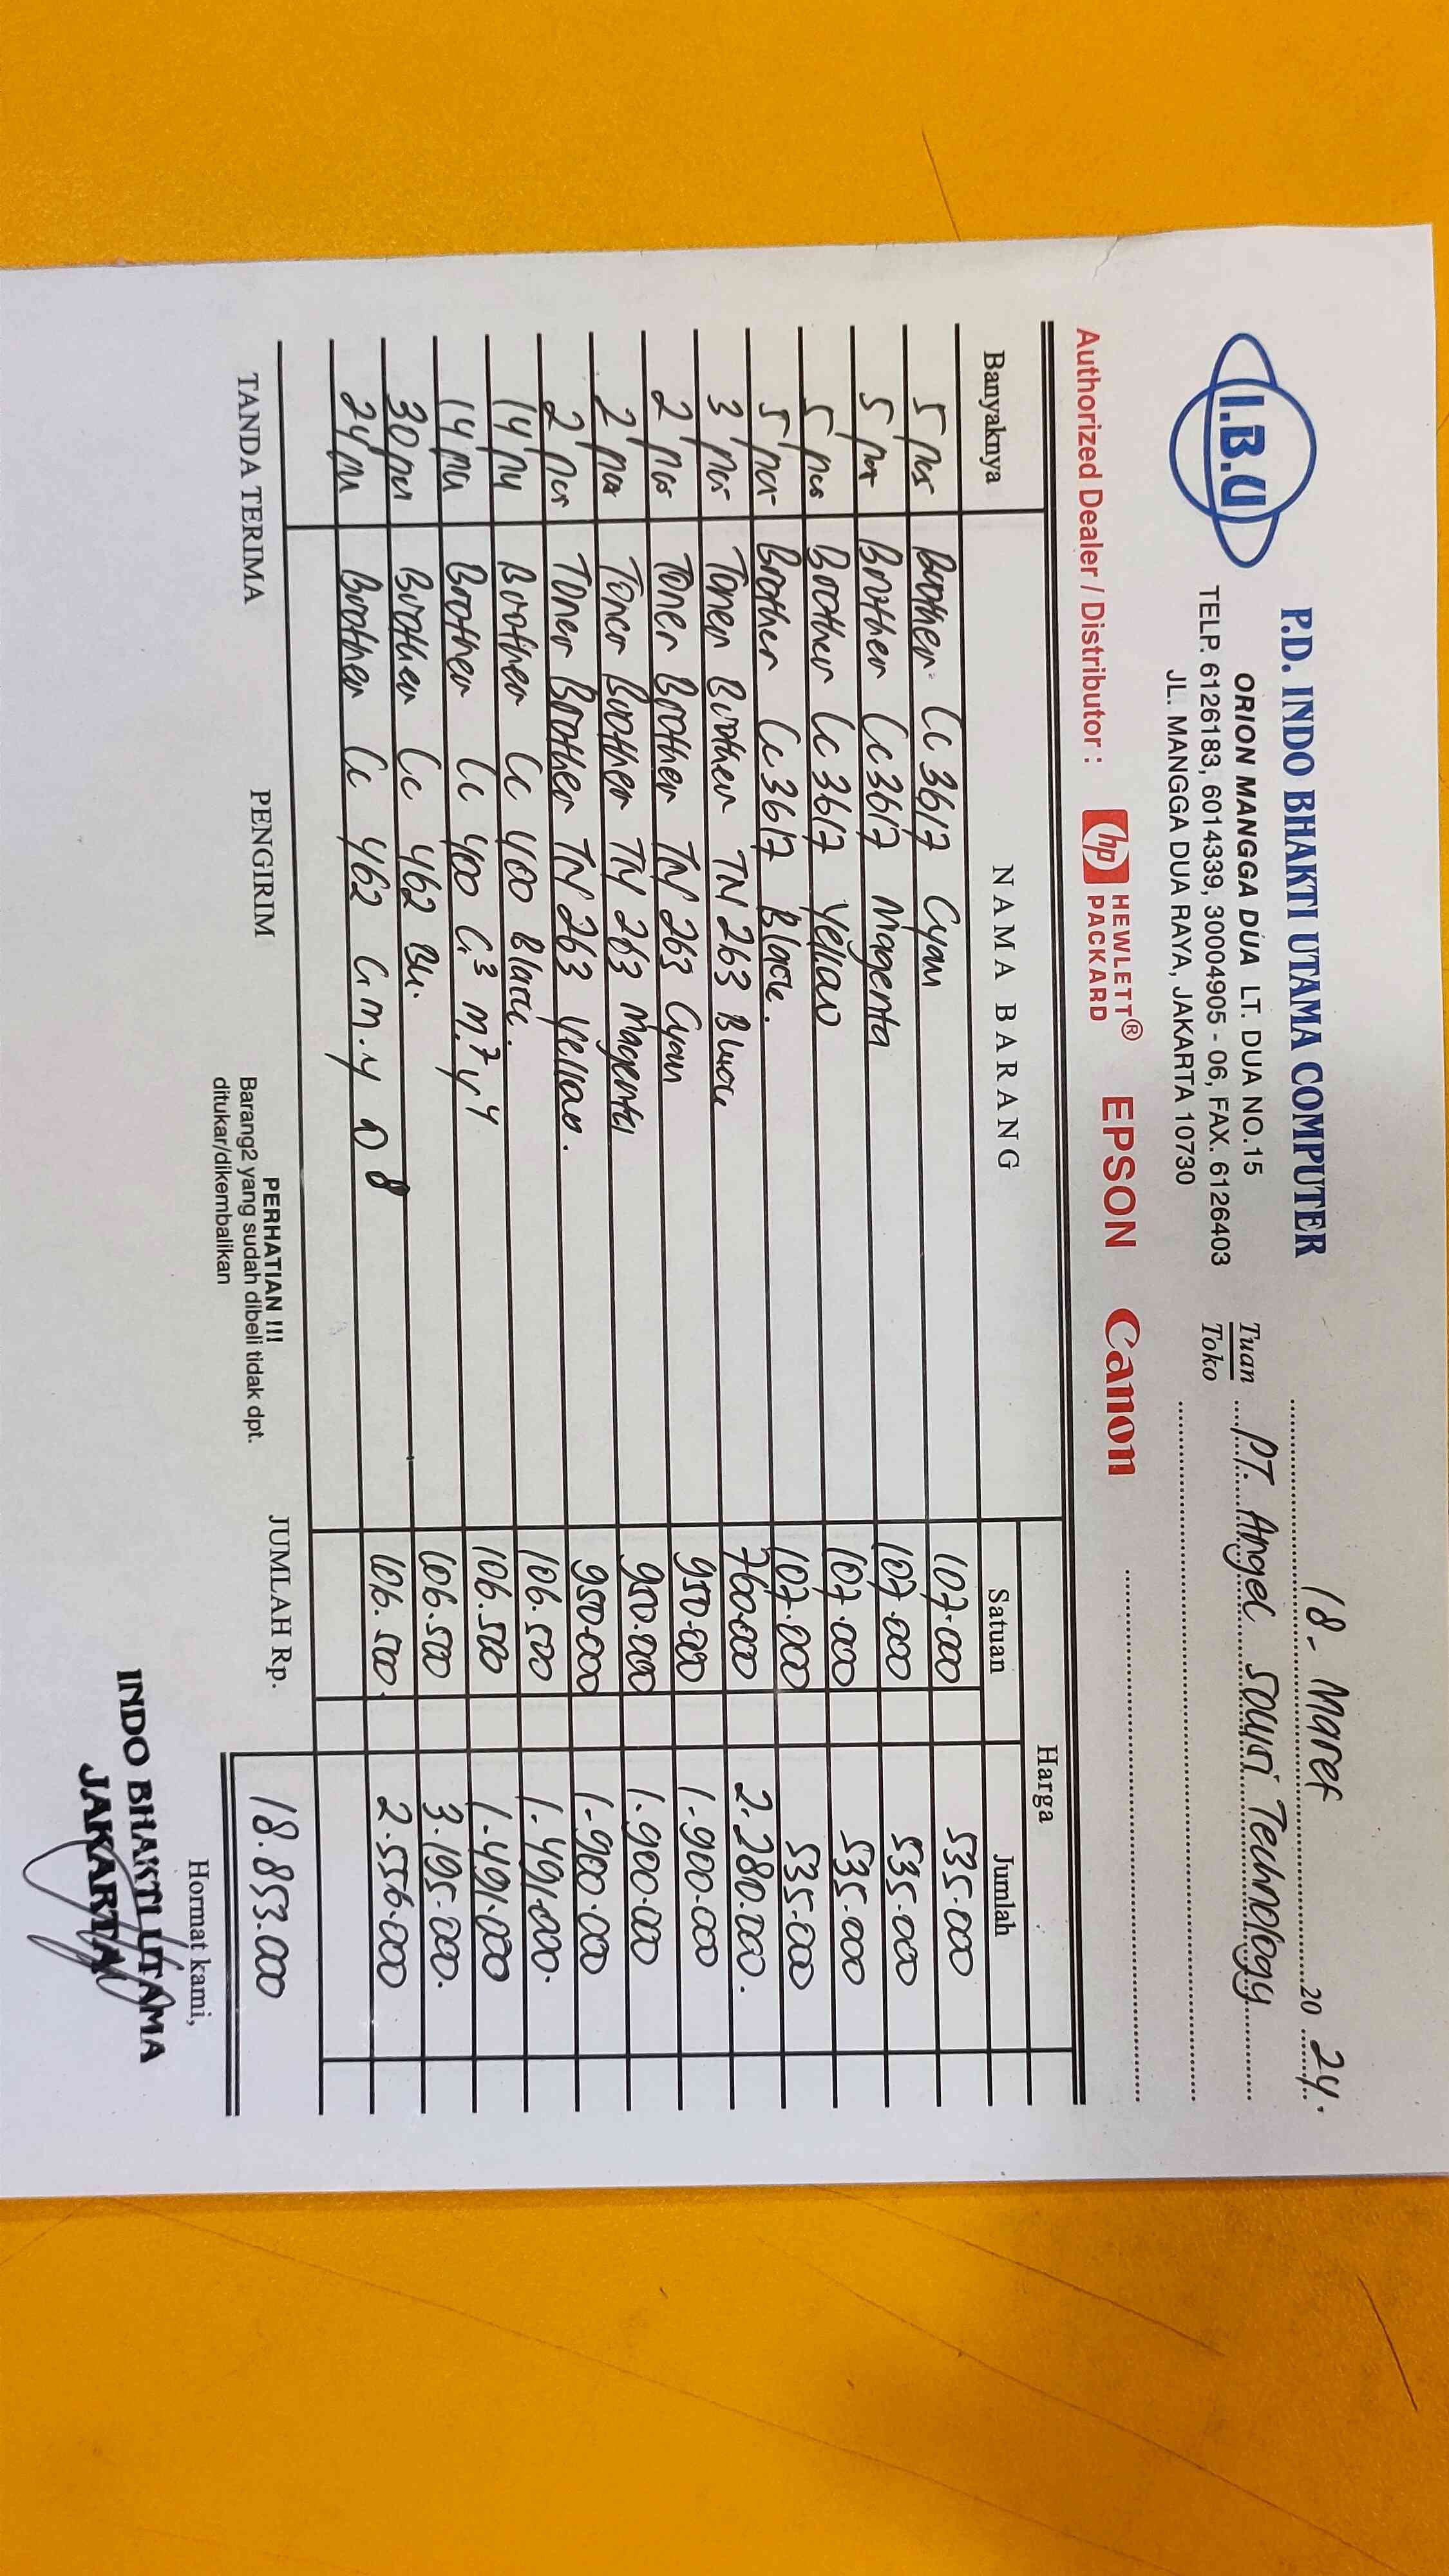 I.B.U
P.D. INDO BHAKTI UTAMA COMPUTER
ORION MANGGA DUA LT. DUA NO.15
TELP. 6126183, 6014339, 30004905 - 06, FAX. 6126403
JL. MANGGA DUA RAYA, JAKARTA 10730
18 - Maret 20 24.
Tuan PT. Angel Souri Technology
Toko
Authorized Dealer / Distributor : hp HEWLETT® PACKARD EPSON Canon
Banyaknya NAMA BARANG Harga
Satuan Jumlah
5 pcs Brother Lc 3617 Cyan 107.000 535.000
5 pcs Brother Lc 3617 Magenta 107.000 535.000
5 pcs Brother Lc 3617 Yellow 107.000 535.000
5 pcs Brother Lc 3617 Black. 107.000 535.000
3 pcs Toner Brother TN 263 Black 760.000 2.280.000.
2 pcs Toner Brother TN 263 Cyan 950.000 1.900.000
2 pcs Toner Brother TN 263 Magenta 950.000 1.900.000
2 pcs Toner Brother TN 263 Yellow. 950.000 1.900.000
14 pcs Brother Lc 400 Black. 106.500 1.491.000.
14 pcs Brother Lc 400 C.3 M.7 Y4 106.500 1.491.000
30 pcs Brother Lc 462 Bk. 106.500 3.195.000.
24 pcs Brother Lc 462 C.M.Y 8 106.500. 2.556.000
TANDA TERIMA PENGIRIM
PERHATIAN !!!
Barang2 yang sudah dibeli tidak dpt.
ditukar/dikembalikan
JUMLAH Rp. 18.853.000
Hormat kami,
INDO BHAKTI UTAMA
JAKARTA